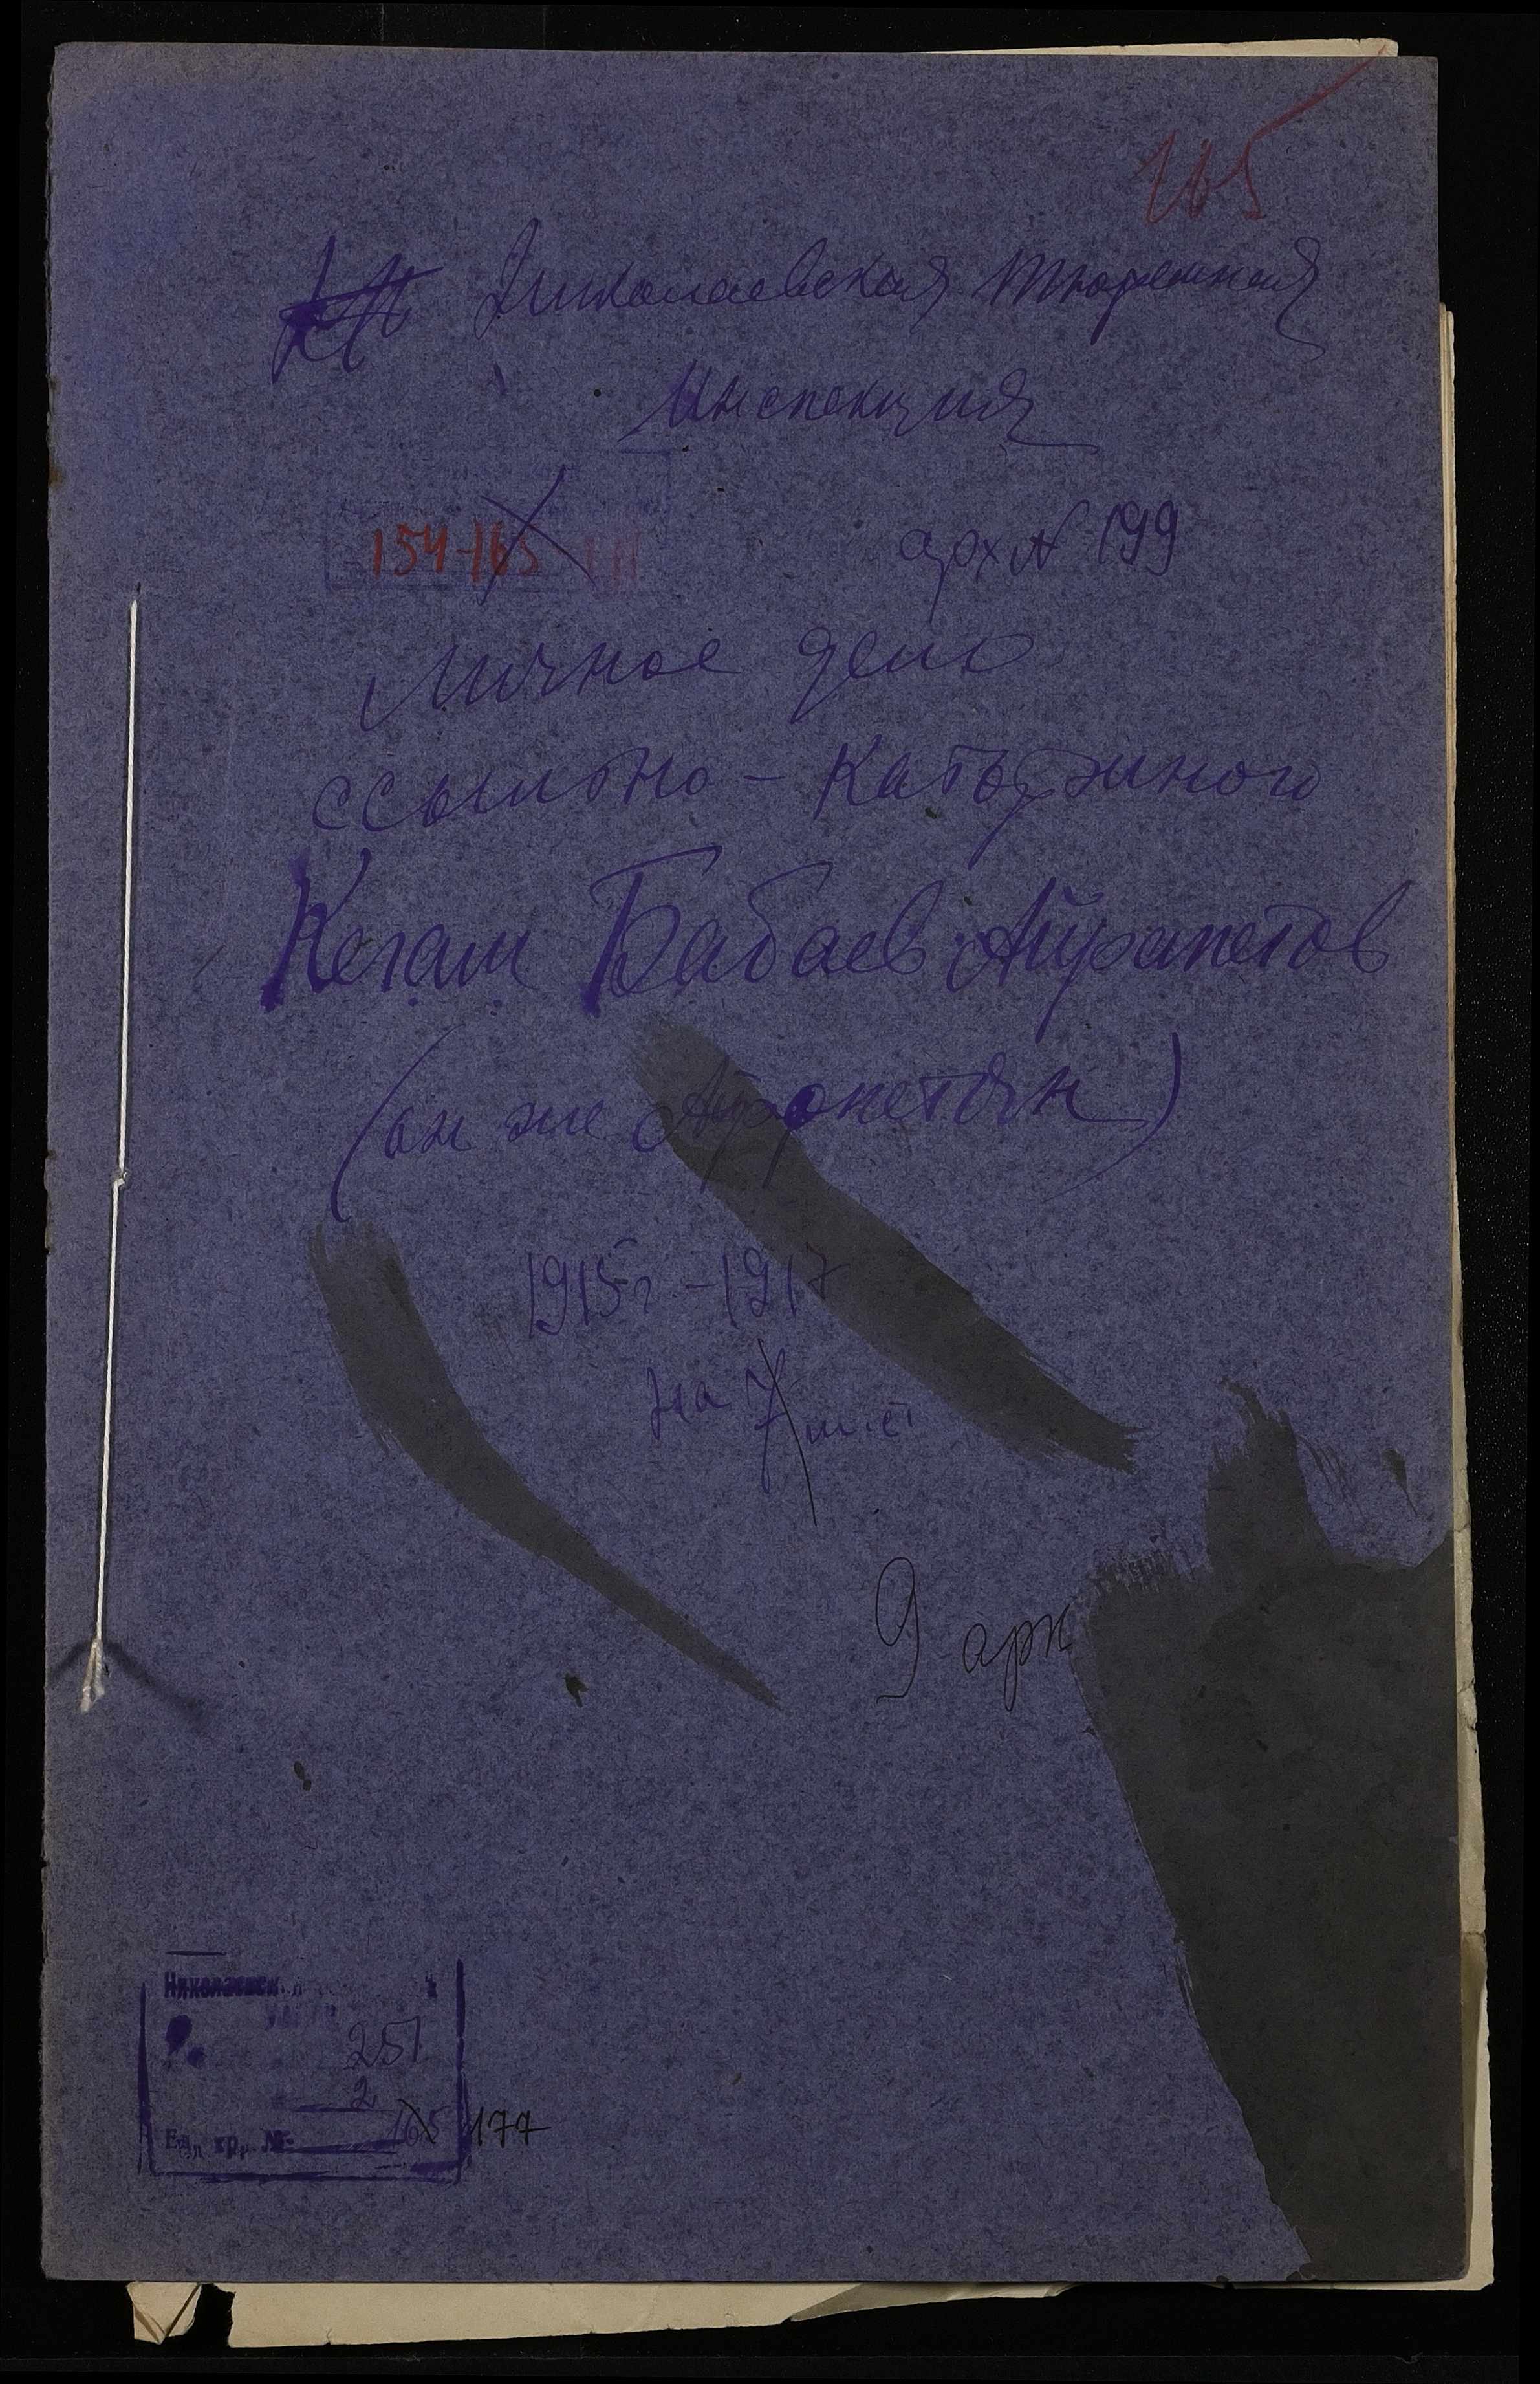 165
Николаевская тюремная
Инспекция
154-165
арх № 199
Личное дело
ссыльно-каторжного
Кегам Бабаев Айрапетов
(он же Айропетян)
1915г. - 1917
на 7 лист
9 арк
Николаевск
251
2
Ед. хр. № 165 177